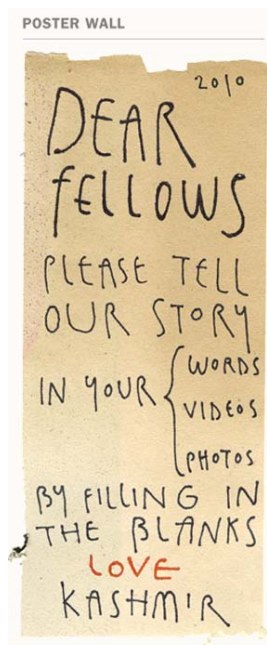 POSTER WALL
2010
DEAR
FELLOWS
PLEASE TELL
OUR STORY
IN YOUR { WORDS
VIDEOS
PHOTOS
BY FILLING IN
THE BLANKS
LOVE
KASHMIR